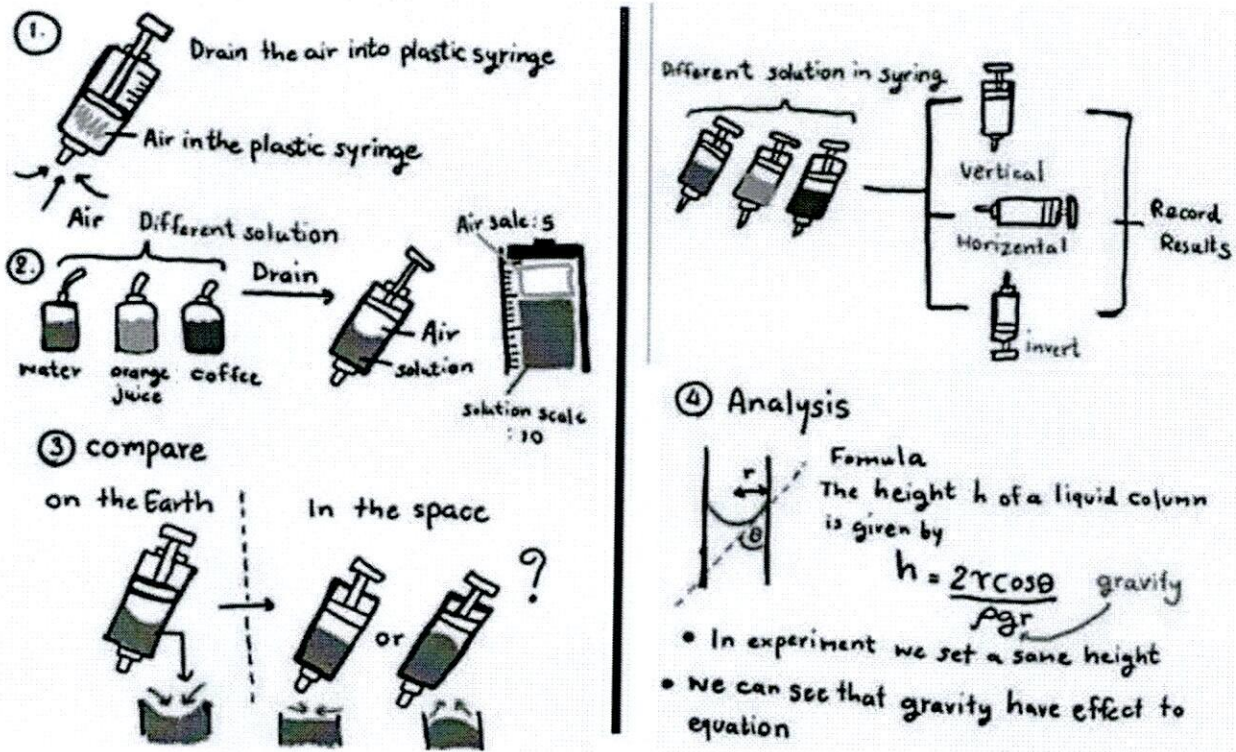 1.
Drain the air into plastic syringe
Air in the plastic syringe
Air
Different solution
2.
Drain
water
orange
juice
coffee
Air
solution
Air sale: 5
solution scale
: 10
3 compare
on the Earth
In the space
or
?
Different solution in syring
Vertical
Horizental
invert
Record
Results
4 Analysis
r
θ
Fomula
The height h of a liquid column
is given by
h = 2rcosθ
ρgr
gravity
• In experiment we set a same height
• we can see that gravity have effect to
equation